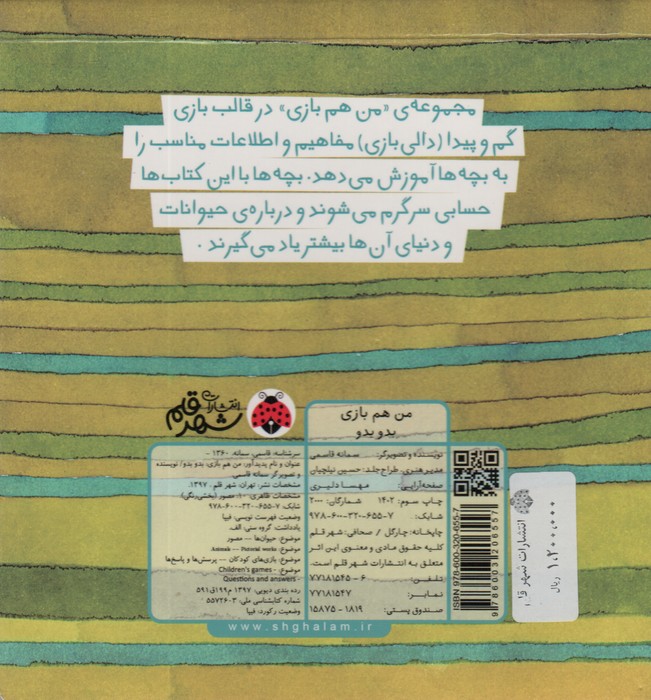 مجموعه‌ی «من هم بازی» در قالب بازی
گم و پیدا (دالی بازی) مفاهیم و اطلاعات مناسب را
به بچه‌ها آموزش می‌دهد. بچه‌ها با این کتاب‌ها
حسابی سرگرم می‌شوند و درباره‌ی حیوانات
و دنیای آن‌ها بیشتر یاد می‌گیرند.
انتشارات
شهر قلم
من هم بازی
بدو بدو
نویسنده و تصویرگر: سمانه قاسمی
مدیر هنری، طراح جلد: حسین نیلچیان
صفحه‌آرایی: مهسا دلیری
چاپ سوم: ۱۴۰۲ شمارگان: ۲۰۰۰
شابک: ۹۷۸-۶۰۰-۳۲۰-۶۵۵-۷
چاپخانه: چارگل / صحافی: شهر قلم
کلیه حقوق مادی و معنوی این اثر
متعلق به انتشارات شهر قلم است.
تلفن: ۷۷۱۸۱۵۴۵-۶
نمابر: ۷۷۱۸۱۵۴۷
صندوق پستی: ۱۵۸۷۵-۱۸۱۹
سرشناسه: قاسمی، سمانه، ۱۳۶۰ -
عنوان و نام پدیدآور: من هم بازی: بدو بدو/ نویسنده
و تصویرگر سمانه قاسمی.
مشخصات نشر: تهران: شهر قلم، ۱۳۹۷.
مشخصات ظاهری: ۱۰: مصور (بخشی رنگی)
شابک: ۹۷۸-۶۰۰-۳۲۰-۶۵۵-۷
وضعیت فهرست نویسی: فیپا
یادداشت: گروه سنی: الف.
موضوع: حیوان‌ها -- مصور
موضوع: Animals -- Pictorial works
موضوع: بازی‌های کودکان -- پرسش‌ها و پاسخ‌ها
موضوع: Children's games -
Questions and answers -
رده بندی دیویی: ۱۳۹۷ م۱۹۹ق ۵۹۱
شماره کتابشناسی ملی: ۵۵۷۲۶۰۳
وضعیت رکورد: فیپا
ISBN 978-600-320-655-7
9786003206557
www.shghalam.ir
انتشارات شهر قلم
۱،۲۰۰،۰۰۰
ریال